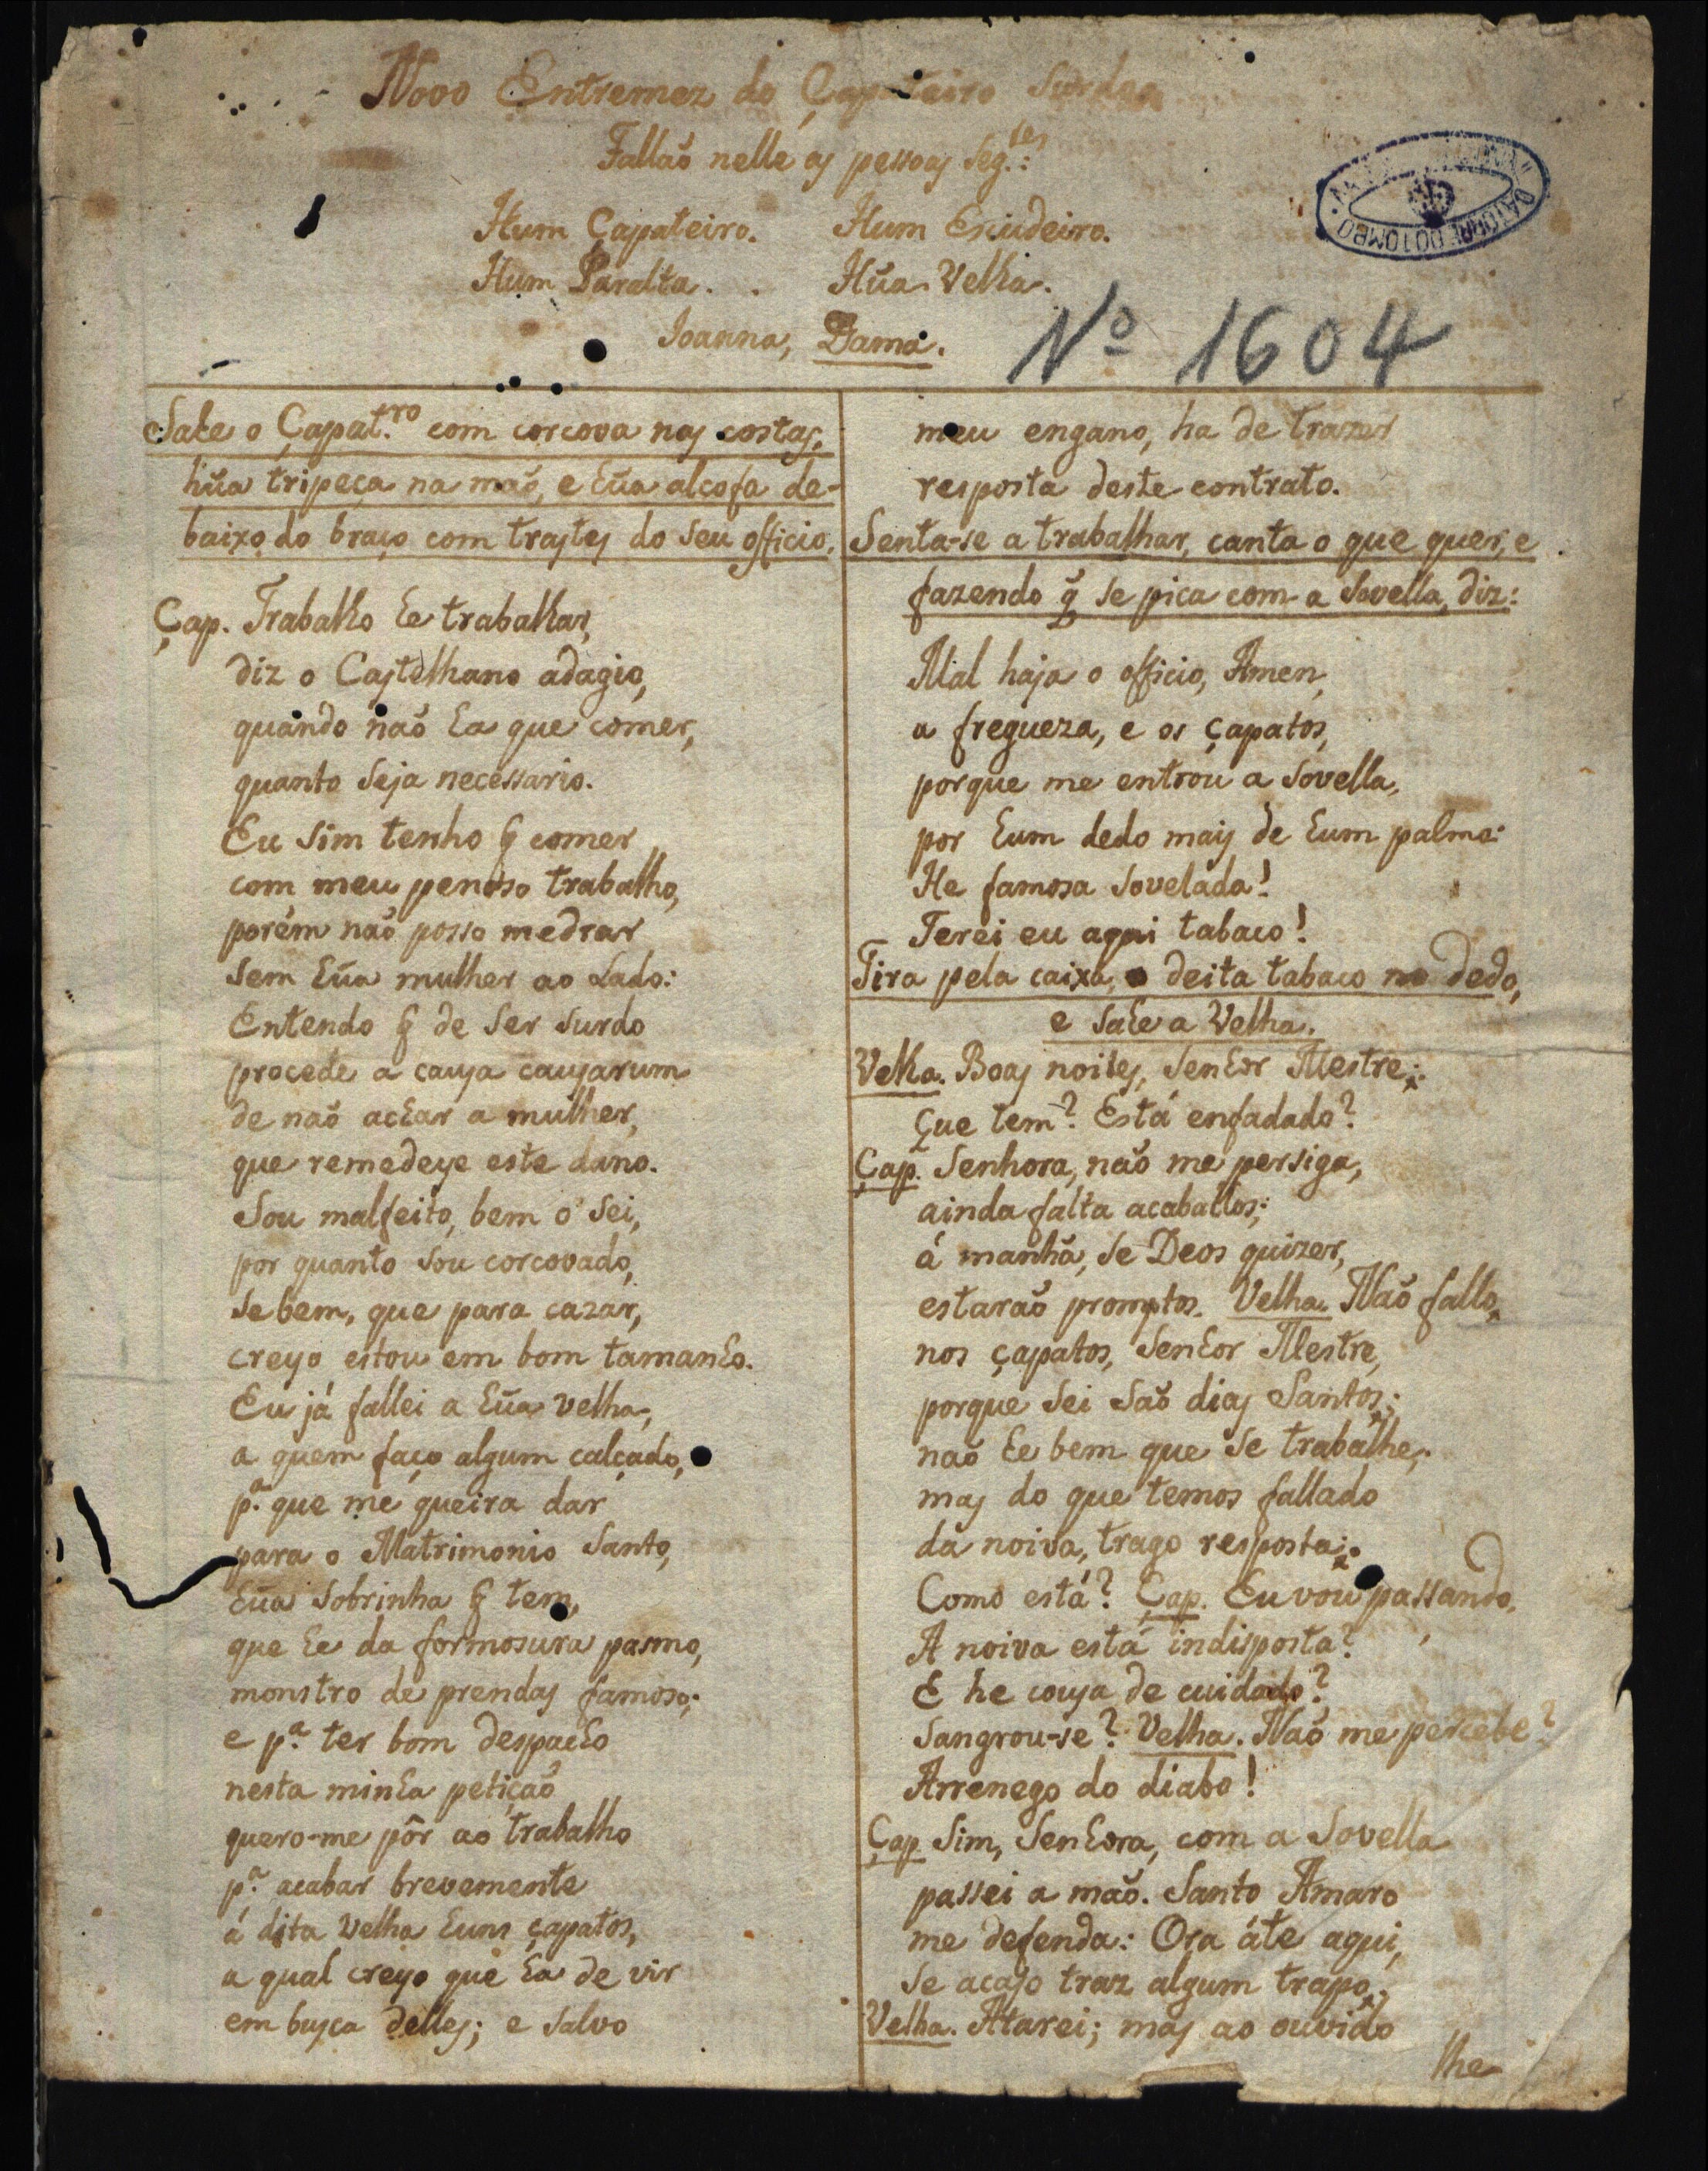 Novo Entremez do Çapateiro Surdo
Fallaõ nelle as pessoas Seg.tes:
Hum Çapateiro. Hum Escudeiro.
Hum Paralta. . Hũa Velha.
Joanna, Dama.
Nº 1604
DA TORRE DO TOMBO
Sahe o Çapat.ro com corcova nas costas,
hũa tripeça na maõ, e hũa alcofa de-
baixo do braço com trastes do seu officio.
Çap. Trabalho he trabalhar,
diz o Castelhano adagio,
quando naõ ha que comer,
quanto seja necessario.
Eu sim tenho q̃ comer
com meu penoso trabalho,
porém naõ posso medrar
sem hũa mulher ao lado:
Entendo q̃ de ser surdo
procede a causa causarum
de naõ achar a mulher,
que remedeye este dano.
Sou malfeito, bem o sei,
por quanto sou corcovado,
se bem, que para cazar,
creyo estou em bom tamanho.
Eu já fallei a hũa velha,
a quem faço algum calçado,
p.ª que me queira dar
para o Matrimonio Santo,
hũa sobrinha q̃ tem,
que he da formosura pasmo,
monstro de prendas famoso;
e p.ª ter bom despacho
nesta minha petiçaõ
quero-me pôr ao trabalho
p.ª acabar brevemente
á dita Velha huns çapatos,
a qual creyo que ha de vir
em busca delles; e salvo
meu engano, ha de trazer
resposta deste contrato.
Senta-se a trabalhar, canta o que quer, e
fazendo q̃ se pica com a Sovella, diz:
Mal haja o officio, Amen,
a fregueza, e os çapatos,
porque me entrou a Sovella,
por hum dedo mais de hum palmo:
He famosa sovelada!
Terei eu aqui tabaco!
Tira pela caixa, e deita tabaco no dedo,
e sahe a Velha.
Velha. Boas noites, senhor Mestre;
Que tem? Está enfadado?
Çap. Senhora, naõ me persiga,
ainda falta acaballos;
á manhã, se Deos quizer,
estaraõ promptos. Velha. Naõ fallo
nos çapatos, senhor Mestre,
porque sei saõ dias Santos;
naõ he bem que se trabalhe;
mas do que temos fallado
da noiva, trago resposta;
Como está? Çap. Eu vou passando.
A noiva está indisposta?
E he cousa de cuidado?
Sangrou-se? Velha. Naõ me percebe?
Arrenego do diabo!
Çap. Sim, Senhora, com a Sovella
passei a maõ. Santo Amaro
me defenda: Ora áte aqui,
se acaso traz algum trapo.
Velha. Atarei; mas ao ouvido
lhe